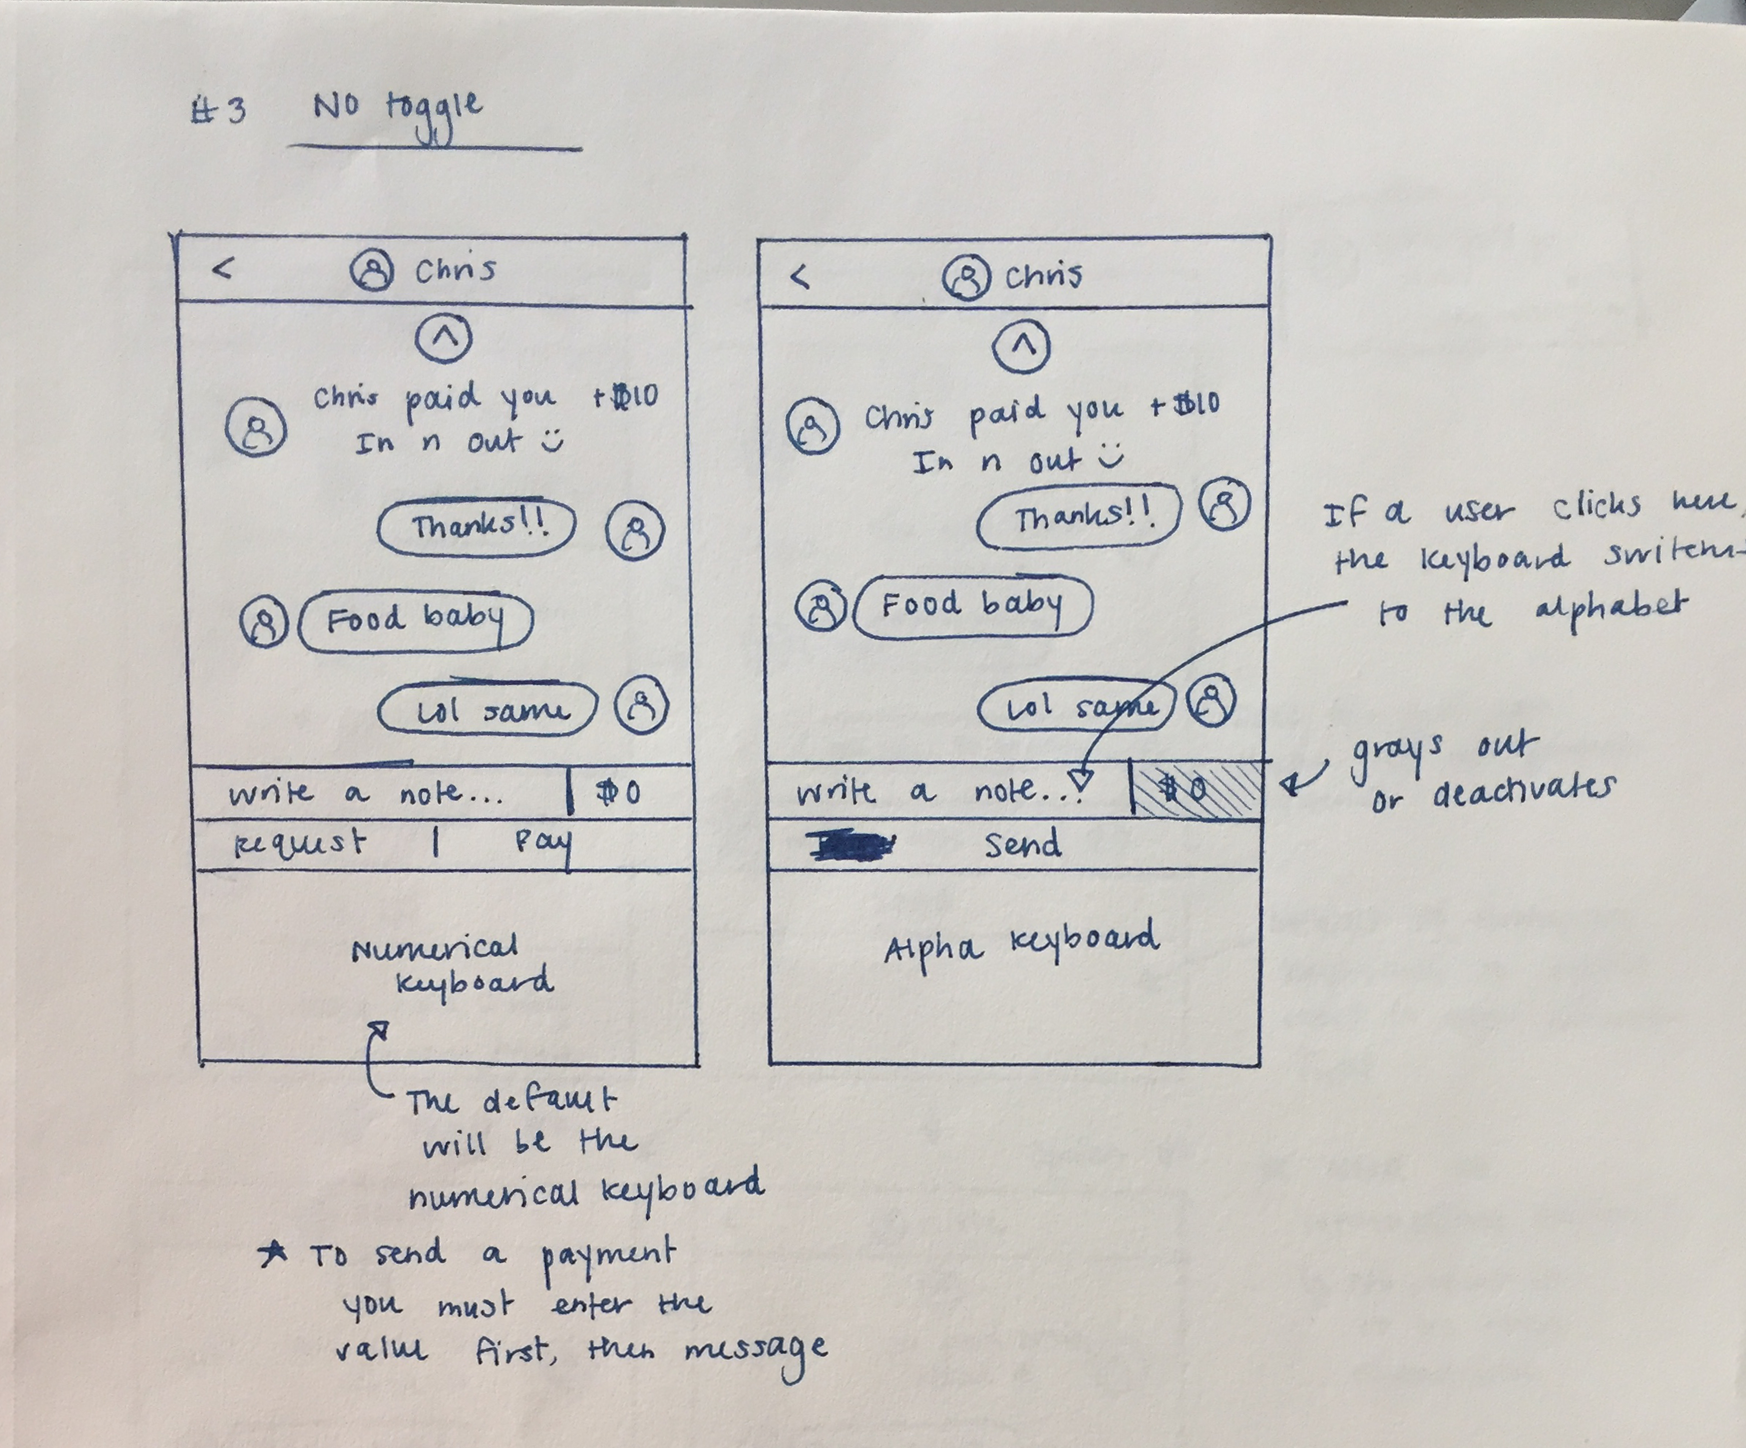 #3 No toggle
< Chris
Chris paid you +$10
In n out
Thanks!!
Food baby
Lol same
write a note... $0
Request | Pay
Numerical
keyboard
The default
will be the
numerical keyboard
★ To send a payment
you must enter the
value first, then message
< Chris
Chris paid you +$10
In n out
Thanks!!
Food baby
Lol same
write a note... $0
Send
Alpha keyboard
If a user clicks here,
the keyboard switches
to the alphabet
grays out
or deactivates